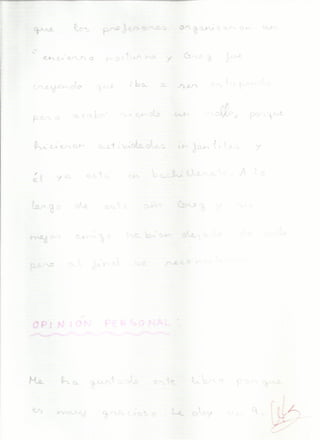 que los profesores organizaron un
"encierro nocturno y Greg fue
creyendo que iba a ser estupendo
pero acabó siendo un rollo, porque
hicieron actividades infantiles y
él ya está in bachillerato. A lo
largo de este año Greg y su
mejor amigo habían dejado de
pero al final se
OPINIÓN PERSONAL:
Me ha gustado este libro porque
es muy gracioso. Le doy un 9.